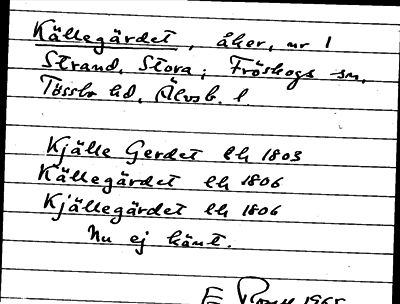 Källegärdet, åker, nr 1
Strand, Stora; Fröskogs sn,
Tössbo hd, Älvsb. l
Kjälle Gerdet lh 1803
Källegärdet lh 1806
Kjällegärdet lh 1806
Nu ej känt.
E 1965